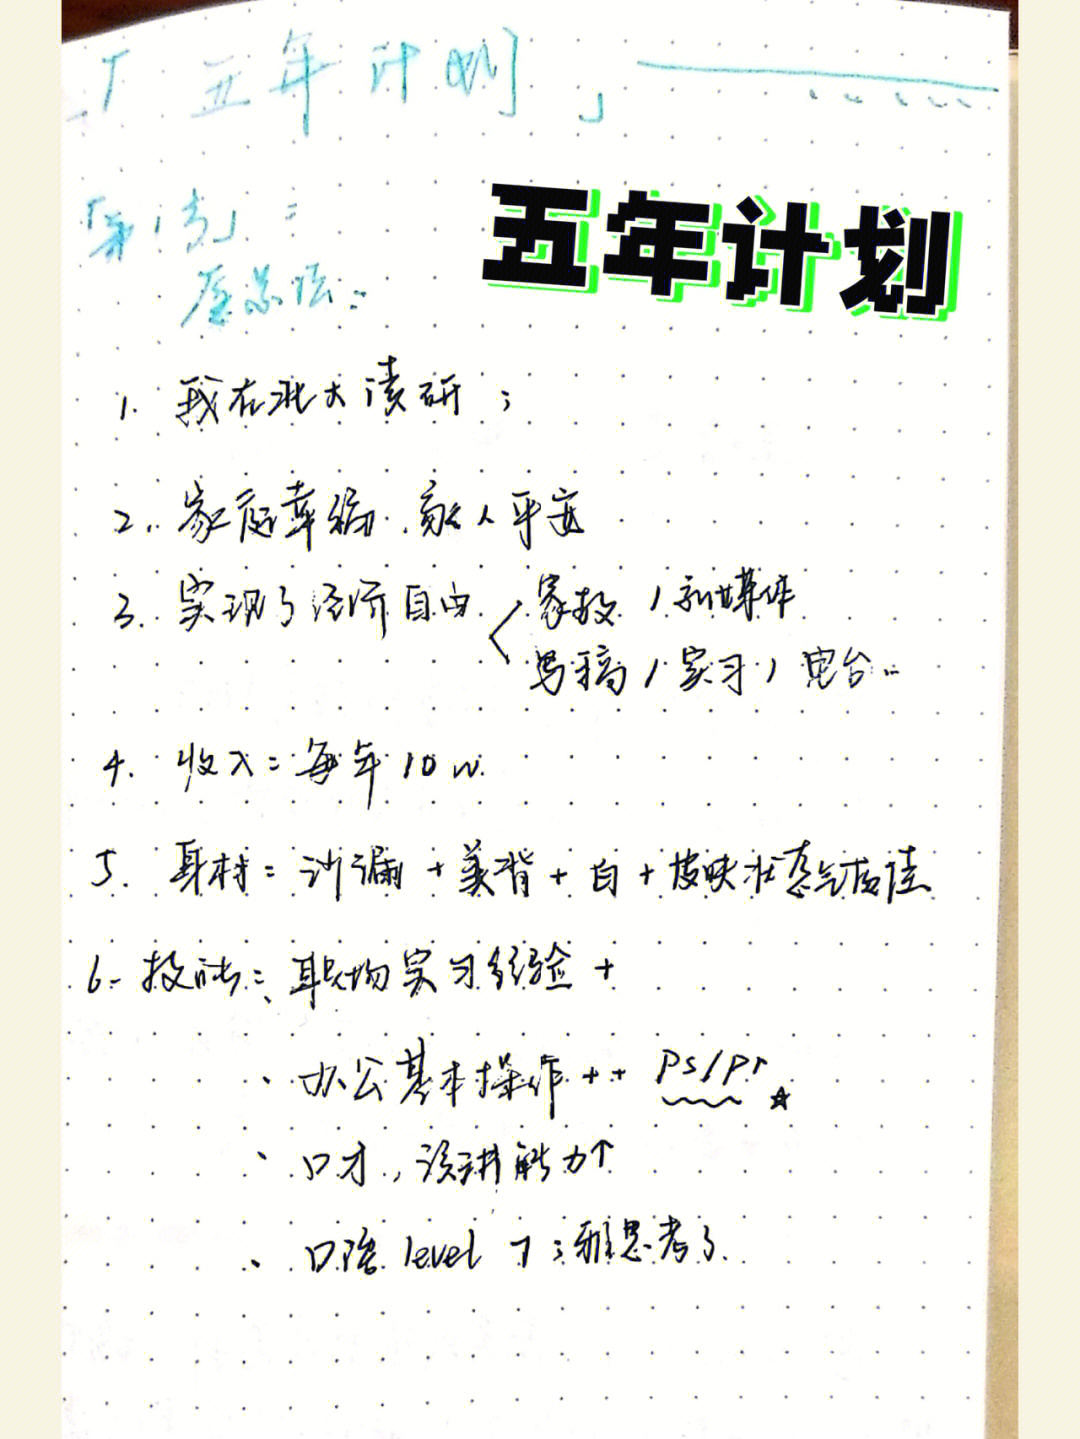 「五年计划」
五年计划
「第1步」：
愿景法：
1. 我在北大读研；
2. 家庭幸福．家人平安
3. 实现了经济自由 家教／新媒体
写稿／实习／电台..
4. 收入：每年10w.
5. 身材：沙漏+美背+白+皮肤状态气质佳
6. 技能：职场实习经验+
、办公基本操作++ ps/pr ☆
、口才，演讲能力↑
、口语 level 7；雅思考了.